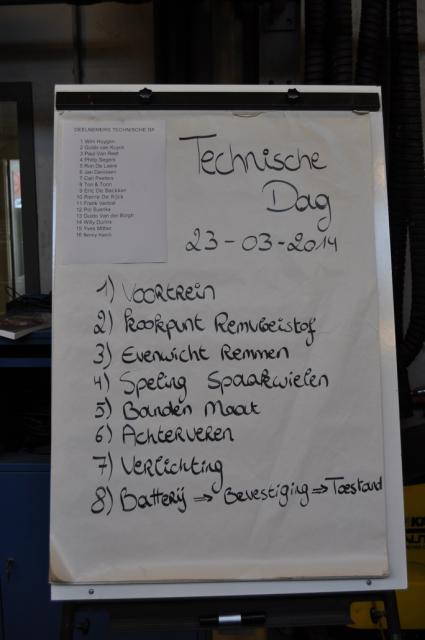 DEELNEMERS TECHNISCHE DA
1 Wim Huygen
2 Guido van Kuyck
3 Paul Van Reet
4 Philip Segers
5 Ron De Leers
6 Jan Denissen
7 Carl Peeters
8 Ton & Toon
9 Eric De Backker
10 Pierre De Rijck
11 Frank Verbist
13 Guido Van der Borgh
14 Willy Dunns
15 Yves Mither
16 Benny
Technische
Dag
23-03-2014
1) Voortrein
2) Kookpunt Remvloeistof
3) Evenwicht Remmen
4) Speling Spaakwielen
5) Banden Maat
6) Achterveren
7) Verlichting
8) Batterij ⇒ Bevestiging ⇒ Toestand